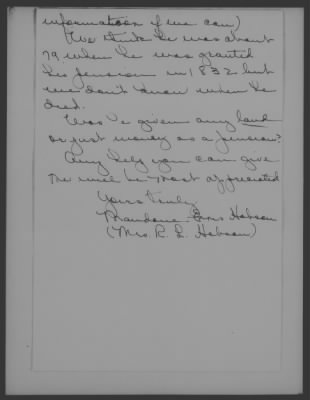 information if we can)
We think he was about
79 when he was granted
his pension in 1832 but
we don't know when he
died.
Was he given any land
or just money as a pension?
Any help you can give
me will be most appreciated
Yours truly,
Hobson
(Mrs. R. L. Hobson)